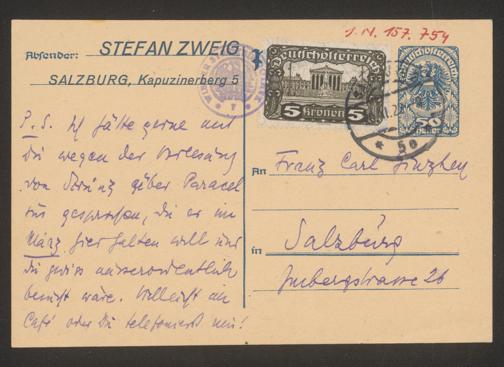 J.N. 157.754
Absender: STEFAN ZWEIG
SALZBURG, Kapuzinerberg 5
Deutschösterreich
5 Kronen 5
Deutschösterreich
50
5a
P.S. Ich hätte gerne mit
dir wegen der Vorlesung
von Strunz über Paracel
sus gesprochen, die er im
März hier halten will und
die gewiss ausserordentlich
besucht wäre. Vielleicht im
Café oder Du telefonierst mir!
An Franz Carl Ginzkey
in Salzburg
Imbergstrasse 26